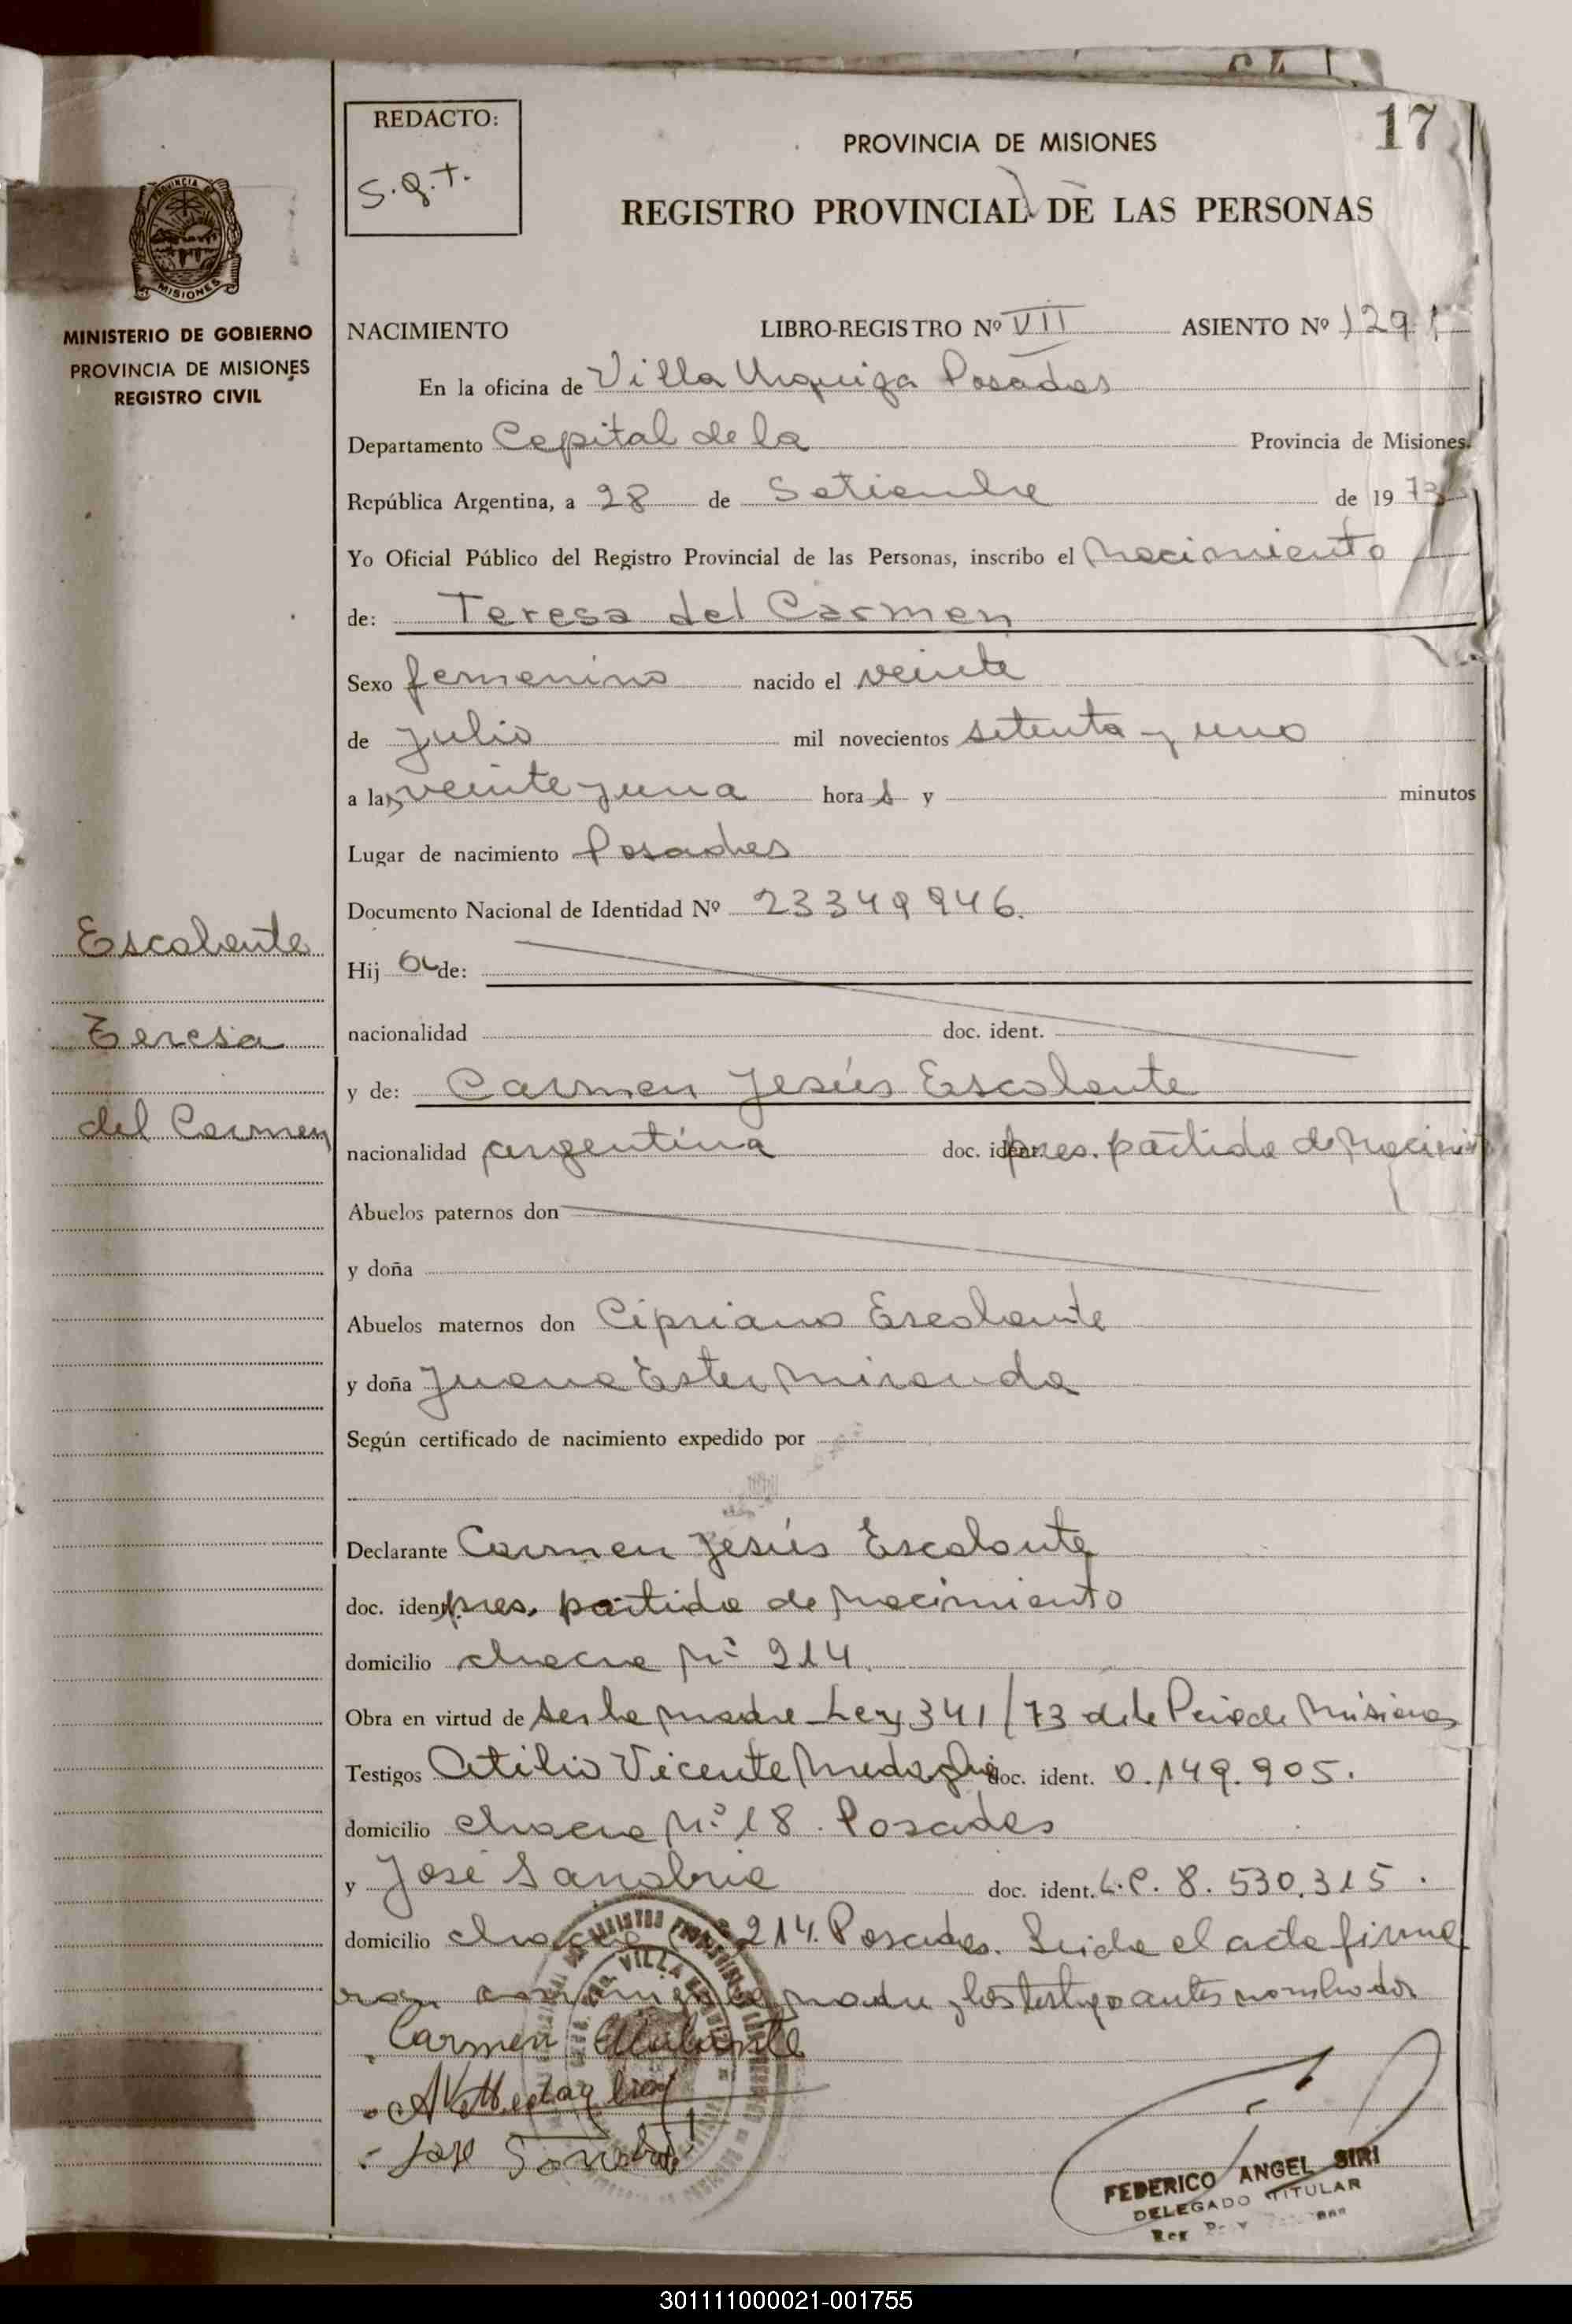 17
REDACTO:
S.G.T.
PROVINCIA DE MISIONES
REGISTRO PROVINCIAL DE LAS PERSONAS
PROVINCIA DE
MISIONES
MINISTERIO DE GOBIERNO
PROVINCIA DE MISIONES
REGISTRO CIVIL
NACIMIENTO LIBRO-REGISTRO Nº VII ASIENTO Nº 1291
En la oficina de Villa Urquiza Posadas
Departamento Capital de la Provincia de Misiones.
República Argentina, a 28 de Setiembre de 1973
Yo Oficial Público del Registro Provincial de las Personas, inscribo el Nacimiento
de: Teresa del Carmen
Sexo femenino nacido el veinte
de Julio mil novecientos setenta y uno
a las veinte y una horas y minutos
Lugar de nacimiento Posadas
Documento Nacional de Identidad Nº 23349946.
Escalante
Hija de:
Teresa
nacionalidad doc. ident.
y de: Carmen Jesús Escalante
del Carmen
nacionalidad argentina doc. ident. pres. partida de Nacimi
Abuelos paternos don
y doña
Abuelos maternos don Cipriano Escalante
y doña Juana Ester Miranda
Según certificado de nacimiento expedido por
Declarante Carmen Jesús Escalante
doc. ident. pres. partida de Nacimiento
domicilio chacra Nº 214.
Obra en virtud de ser la madre Ley 341/73 de la Pcia de Misiones
Testigos Atilio Vicente Medaglia doc. ident. 0.149.905.
domicilio chacra Nº 18. Posadas
y José Sanabria doc. ident. L.C. 8.530.315.
domicilio chacra 214. Posadas. Leida el acta firma
ron conmigo la madre y los testigo antes nombrados
Carmen Escalante
AVMedaglia
Jose Sanabria
VILLA
FEDERICO ANGEL SIRI
DELEGADO TITULAR
301111000021-001755